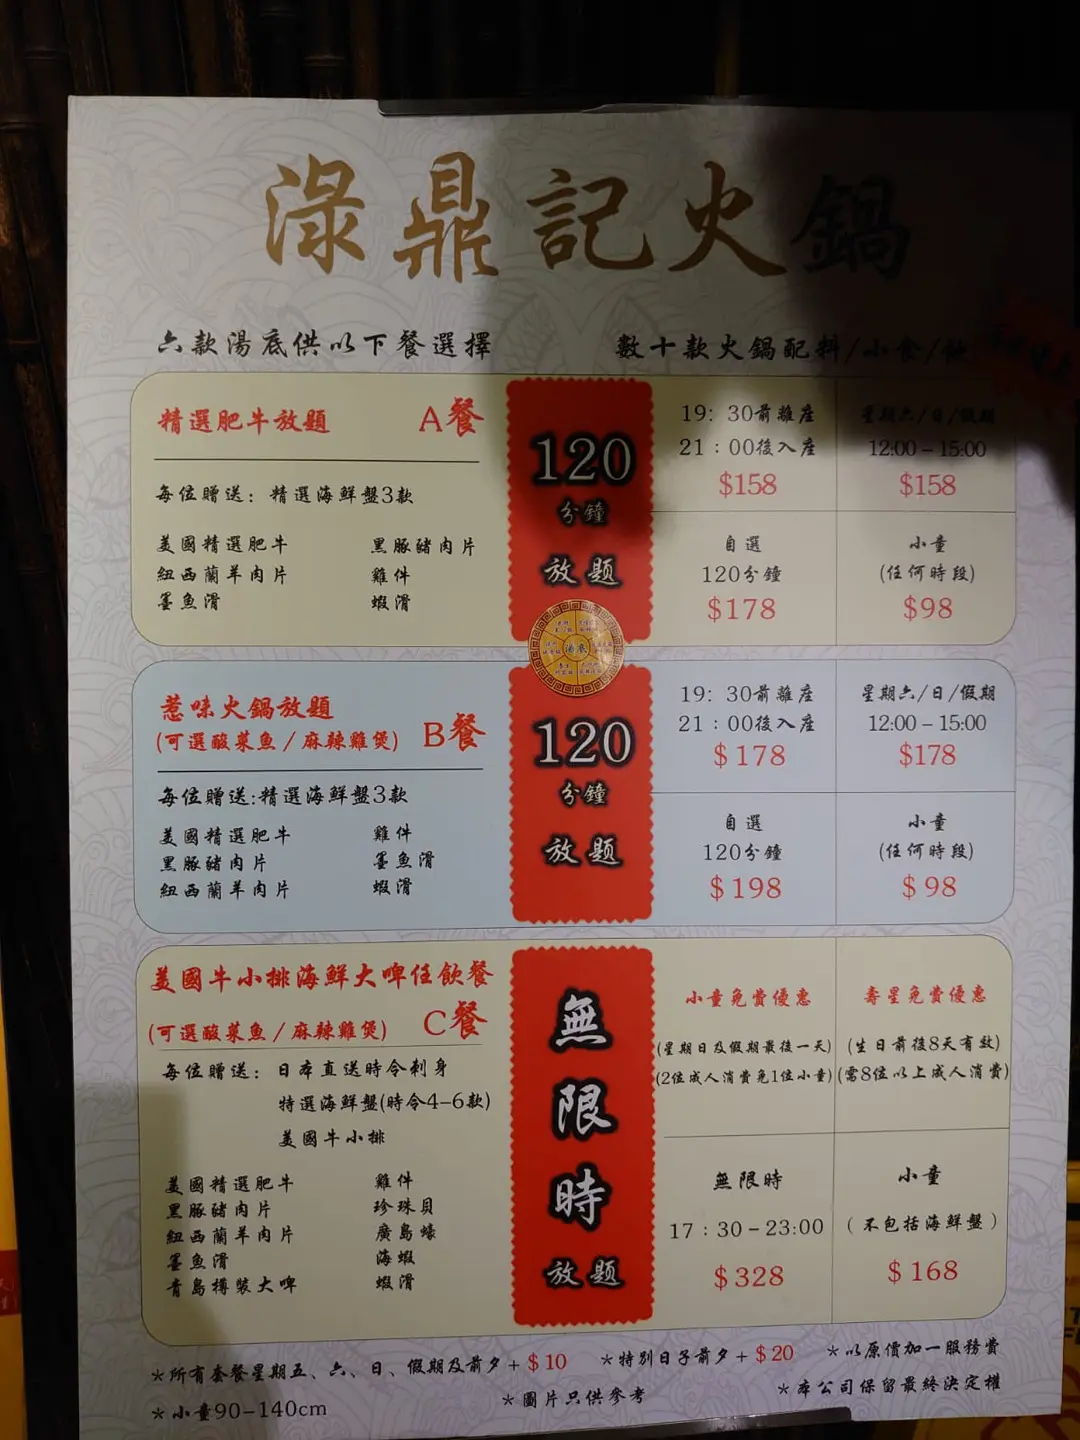 淥鼎記火鍋
六款湯底供以下餐選擇
數十款火鍋配料/小食/飲
精選肥牛放題 A餐
每位贈送：精選海鮮盤3款
美國精選肥牛 黑豚豬肉片
紐西蘭羊肉片 雞件
墨魚滑 蝦滑
120
分鐘
放題
19：30前離座
21：00後入座
$158
星期六/日/假期
12:00－15:00
$158
自選
120分鐘
$178
小童
(任何時段)
$98
湯底
惹味火鍋放題
(可選酸菜魚/麻辣雞煲) B餐
每位贈送:精選海鮮盤3款
美國精選肥牛 雞件
黑豚豬肉片 墨魚滑
紐西蘭羊肉片 蝦滑
120
分鐘
放題
19：30前離座
21：00後入座
$178
星期六/日/假期
12:00－15:00
$178
自選
120分鐘
$198
小童
(任何時段)
$98
美國牛小排海鮮大啤任飲餐
(可選酸菜魚/麻辣雞煲) C餐
每位贈送：日本直送時令刺身
特選海鮮盤(時令4-6款)
美國牛小排
美國精選肥牛 雞件
黑豚豬肉片 珍珠貝
紐西蘭羊肉片 廣島蠔
墨魚滑 海蝦
青島樽裝大啤 蝦滑
無限時
放題
小童免費優惠
(星期日及假期最後一天)
(2位成人消費免1位小童)
壽星免費優惠
(生日前後8天有效)
(需8位以上成人消費)
無限時
17：30－23:00
$328
小童
(不包括海鮮盤)
$168
＊所有套餐星期五、六、日、假期及前夕+$10 ＊特別日子前夕+$20 ＊以原價加一服務費
＊小童90-140cm ＊圖片只供參考 ＊本公司保留最終決定權